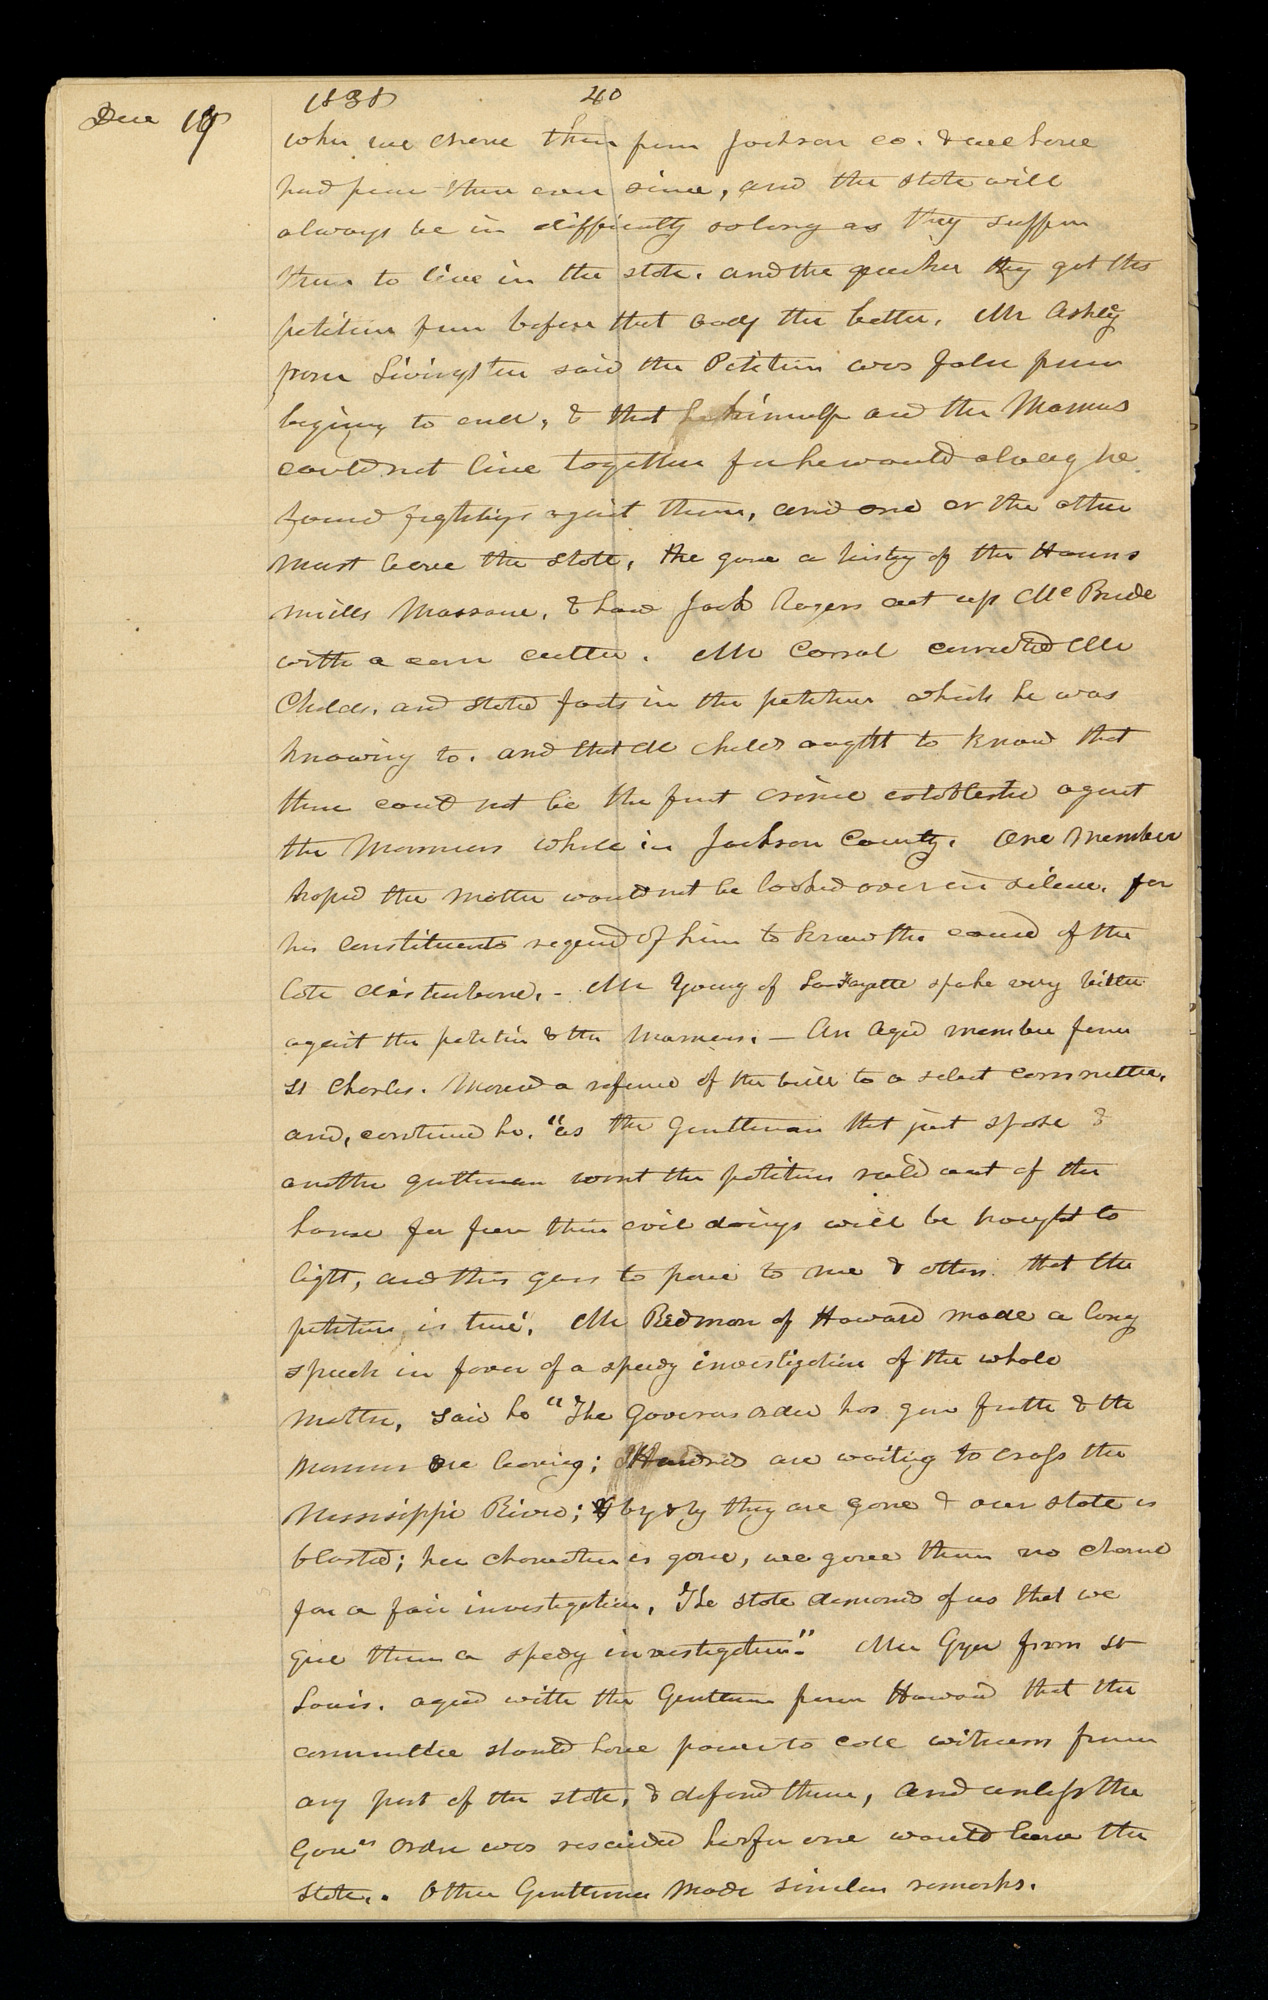 Dec 19
1838 40
when we drove them from Jackson co. & we have
had from them ever since, and the state will
always be in difficulty so long as they suffer
them to live in the state. and the quicker they get this
petition from before that body the better. Mr Ashley
from Livingston said the Petition was false from
begining to end, & that he himself and the Mormons
could not live together for he would always be
found fighting against them, and one or the other
must leave the state, He gave a histoy of the Hauns
mills Massacre, & how Jack Rogers cut up McBride
with a corn cutter. Mr Corral corrected Mr
Childs, and stated facts in the petition which he was
knowing to. and that Mr Childs ought to know that
there could not be the first crime established against
the Mormons while in Jackson County. One Member
hoped the matter would not be looked over in silence. for
his constituents requird of him to know the cause of the
late disturbance. - Mr Young of LaFayette spoke very bitter
against the petitin & the Mormons. — An Aged member from
St Charles. Moved a refernce of the bill to a select committee,
and, continued he, "as the gentleman that just spoke &
another gentleman want the petition ruled out of the
house for fear their evil doings will be brought to
light, and this goes to prove to me & others. that the
petition is true'. Mr Redman of Howard made a long
speech in favor of a speedy investigation of the whole
matter, said he "The Governors order has gone forth & the
mormons are leaving; Hundreds are waiting to cross the
Mississippi River; by & by they are gone & our state is
blasted; her character is gone, we gave them no chance
for a fair investigation, The state demands of us that we
give them a speedy investigation." Mr Gyer from St
Louis. agreed with the Gentleman from Howard that the
committee should have power to call witness from
any part of the state, & defend them, and unless the
Govrs order was rescinded he for one would leave the
state.. Other Gentlemen made similar remarks.